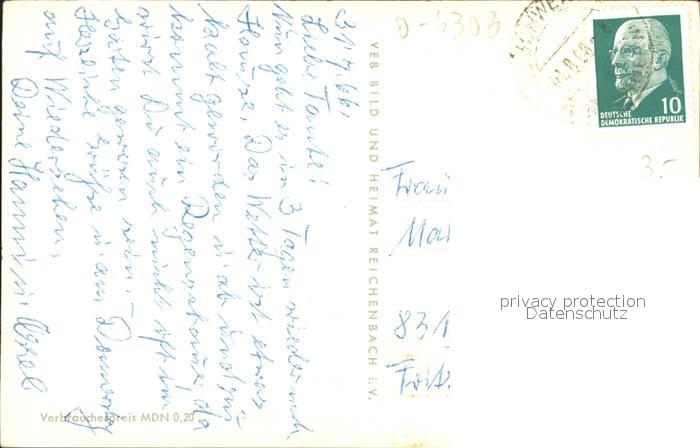 31.7.66.
Liebe Tante!
Nun geht es in 3 Tagen wieder nach
Hause. Das Wetter ist etwas
kalt geworden u. ab und zu
kommt ein Regenschauer, da
wirst Du auch nicht oft im
Garten gewesen sein. –
Herzliche Grüße u. am
auf Wiedersehen,
Deine Hanni u.
Verbraucherpreis MDN 0,20
VEB BILD UND HEIMAT REICHENBACH I. V.
0-6303
10
DEUTSCHE
DEMOKRATISCHE REPUBLIK
3.-
Frau
831
privacy protection
Datenschutz